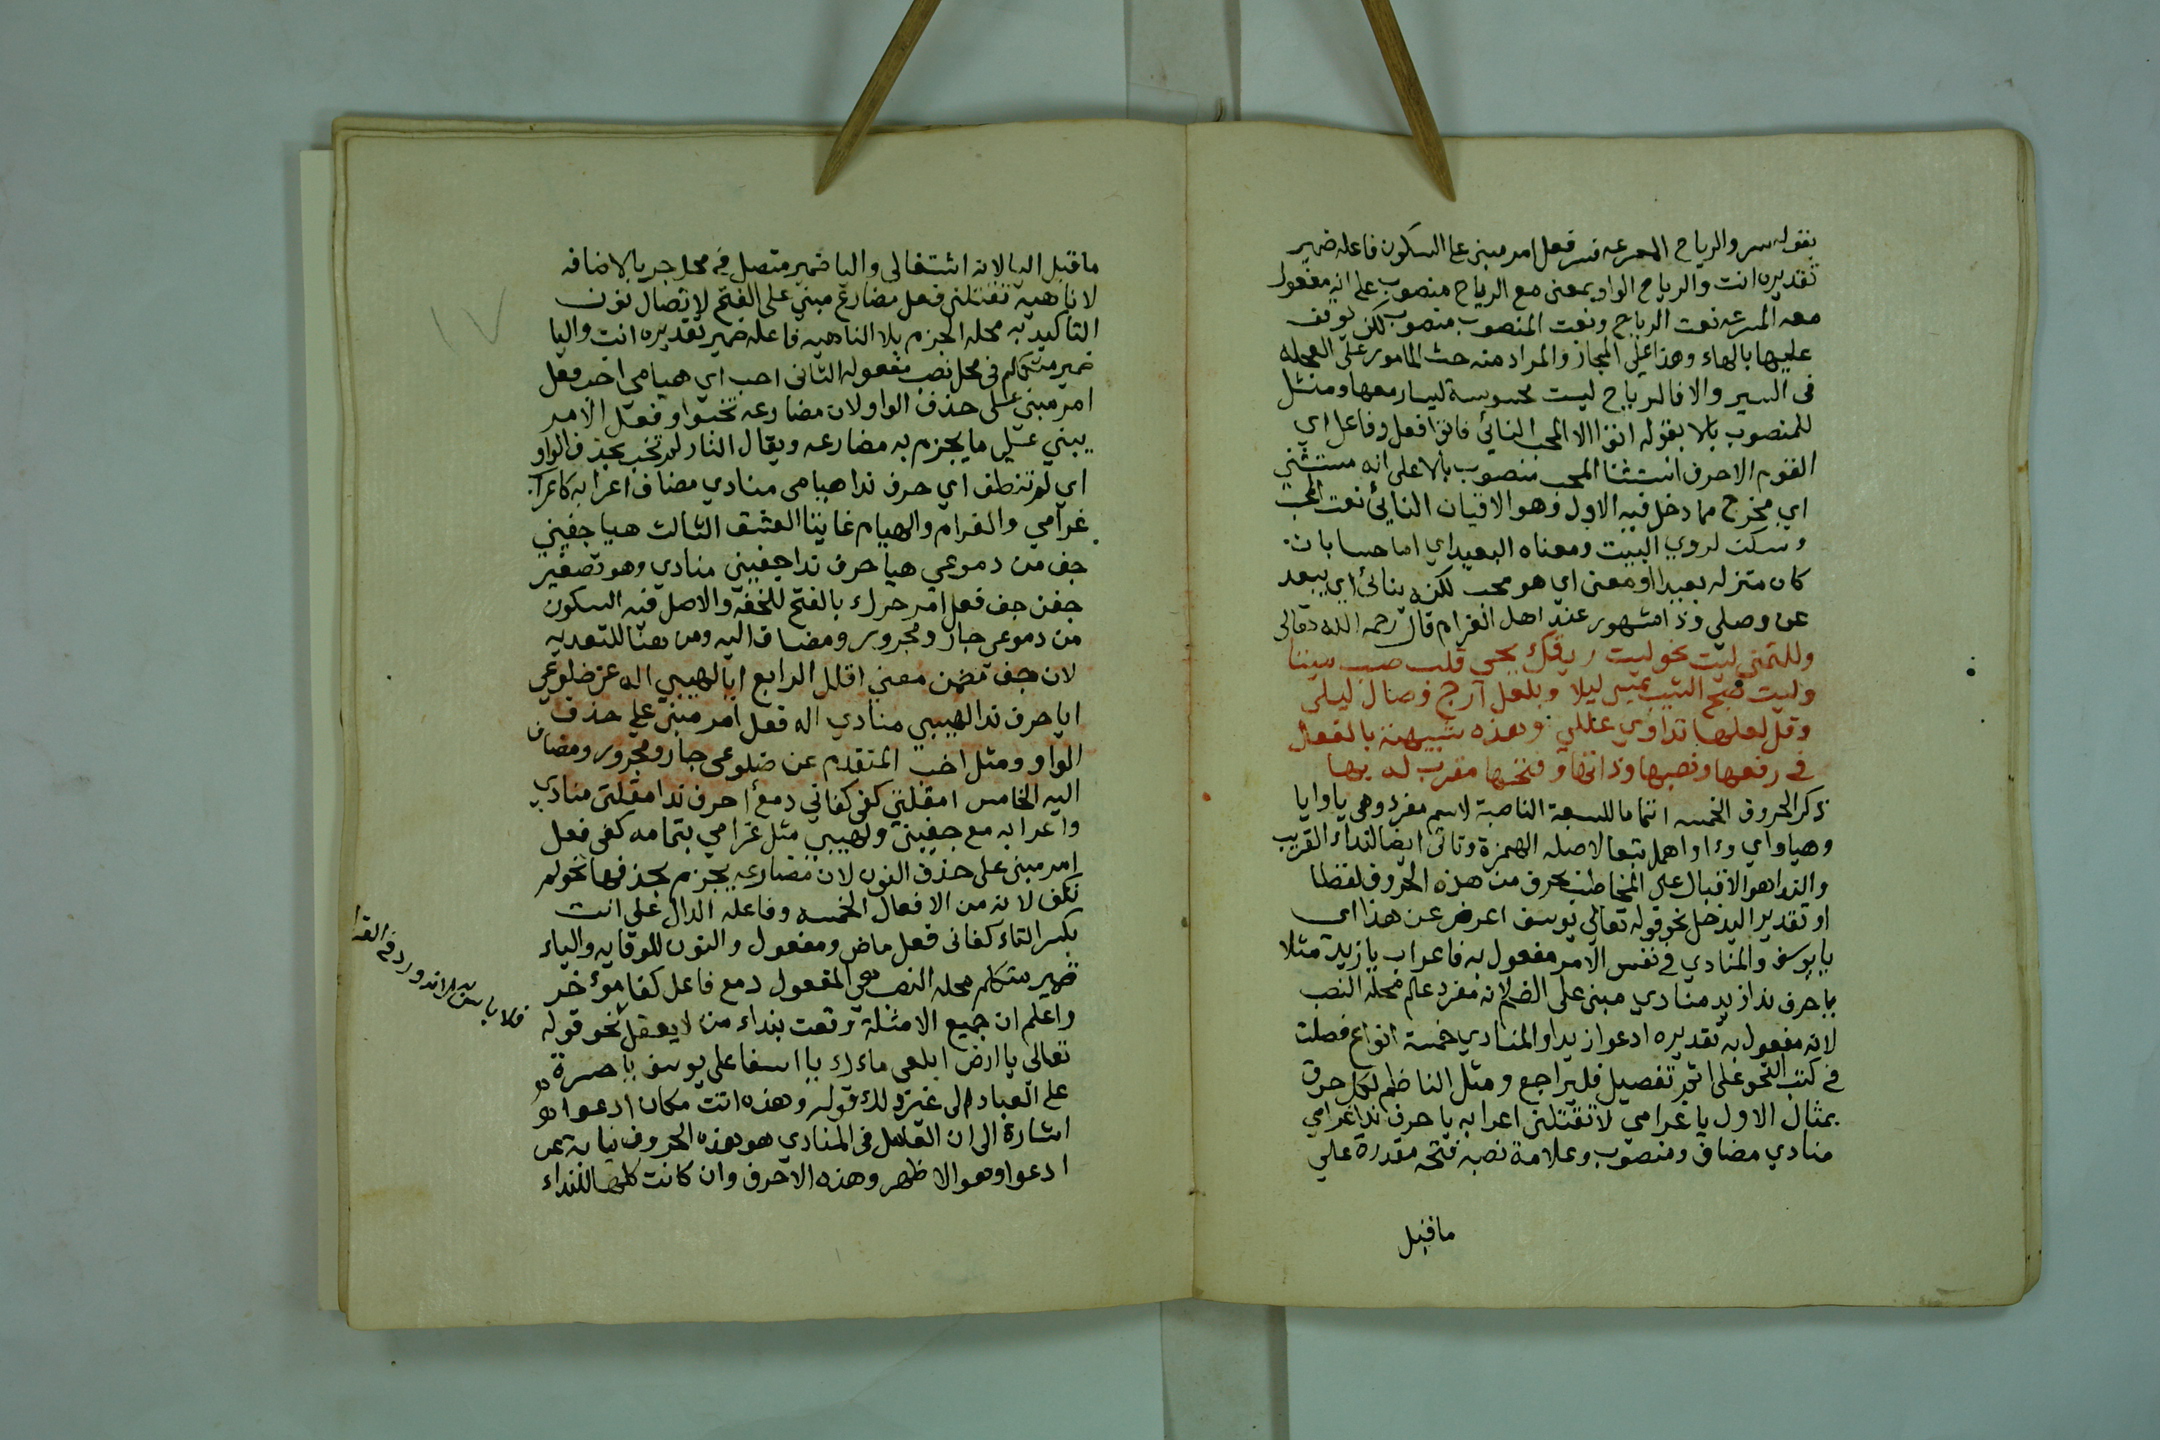 بقوله سر والرياح المسرعه فسر فعل امر مبني على السكون فاعله ضمير
تقديره انت والرياح الواو بمعنى مع الرياح منصوب على انه مفعول
معه المسرعه نعت الرياح ونعت المنصوب منصوب لكن يوقف
عليها بالهاء وهذا على المجاز والمراد منه حث المامور على العجله
في السير والا فالرياح ليست محسوسة ليسار معها ومثل
للمنصوب بالا بقوله اتوا الا المحب النائي فاتوا فعل وفاعل اي
القوم الا حرف استثنا المحب منصوب بالا على انه مستثني
اي مخرج مما دخل فيه الاول وهو الاتيان النائي نعت المحب
وسكنت لروي البيت ومعناه البعيد اي اما حسا بان
كان منزله بعيدا او معنى اي هو محب لكنه ينائي اي يبعد
عن وصلي وذا مشهور عند اهل الغرام قال رحمه الله تعالى
وللتمني ليت نحو ليت ريقك يحي قلب صب
وليت صبح الشيب يمسي ليلا وبلعل ارج وصال ليلى
وقل لعلها تداوي عللي وهذه شبيهة بالفعل
في رفعها ونصبها وذاتها وفتحها مقرب له بها
ذكر الحروف الخمسه اتماما للسبعة الناصبة لاسم مفرد وهي يا وايا
وهيا واي وء او اهمل تبعا لاصله الهمزة وتاتي ايضا لنداء القريب
والندا هو الاقبال على المخاطب بحرف من هذه الحروف لفظا
او تقديرا ليدخل نحو قوله تعالى يوسف اعرض عن هذا اي
يا يوسف والمنادي في نفس الامر مفعول به فاعراب يا زيد مثلا
يا حرف ندا زيد منادي مبني على الضم لانه مفرد علم محله النصب
لانه مفعول به تقديره ادعوا زيدا والمنادي خمسة انواع فصلت
في كتب النحو على اتم تفصيل فليراجع ومثل الناظم لكل حرف
بمثال الاول يا غرامي لا تقتلني اعرابه يا حرف ندا غرامي
منادي مضاف ومنصوب وعلامة نصبه فتحه مقدرة علي
ما قبل
ما قبل اليا لانه اشتغالى واليا ضمير متصل في محل جر بالاضافه
لا ناهيه تقتلني فعل مضارع مبني على الفتح لاتصال نون
التاكيد به محله الجزم بلا الناهيه فاعله ضمير تقديره انت واليا
ضمير متكلم في محل نصب مفعوله الثاني اخب اي هيامي اخب فعل
امر مبني على حذف الواو لان مضارعه تخبوا وفعل الامر
يبني على ما يجزم به مضارعه ويقال النار لم تخب بحذف الواو
اي لم تنطف اي حرف ندا هيامي منادي مضاف اعرابه كاعراب
غرامي والغرام والهيام غايتا العشق الثالث هيا جفيني
جف من دموعي هيا حرف ندا جفيني منادي وهو تصغير
جفن جف فعل امر حرك بالفتح للخفة والاصل فيه السكون
من دموعي جار ومجرور ومضاف اليه ومن هنا للتعديه
لان جف تضمن معني اقلل الرابع ايا لهيبي اله عن ضلوعي
ايا حرف ندا لهيبي منادي اله فعل امر مبني على حذف
الواو ومثل اخب المتقدم عن ضلوعي جار ومجرور ومضاف
اليه الخامس امقلتي كفي كفاني دمع أ حرف ندا مقلتي منادي
واعرابه مع جفيني ولهيبي مثل غرامي بتمامه كفي فعل
امر مبني على حذف النون لان مضارعه يجزم بحذفها نحو لم
تكف لانه من الافعال الخمسه وفاعله الدال على انت
بكسر التاء كفاني فعل ماض ومفعول والنون للوقايه والياء
ضمير متكلم محله النصب على المفعول دمع فاعل كفا مؤخر
واعلم ان جميع الامثلة وقعت بنداء من لا يعقل نحو قوله
تعالى يا ارض ابلعي ماءك يا اسفا على يوسف يا حسرة
على العباد الى غير ذلك قوله وهذه اتت مكان ادعوا هو
اشارة الى ان العامل في المنادي هو هذه الحروف نيابة عن
ادعوا وهو الاظهر وهذه الاحرف وان كانت كلها للنداء